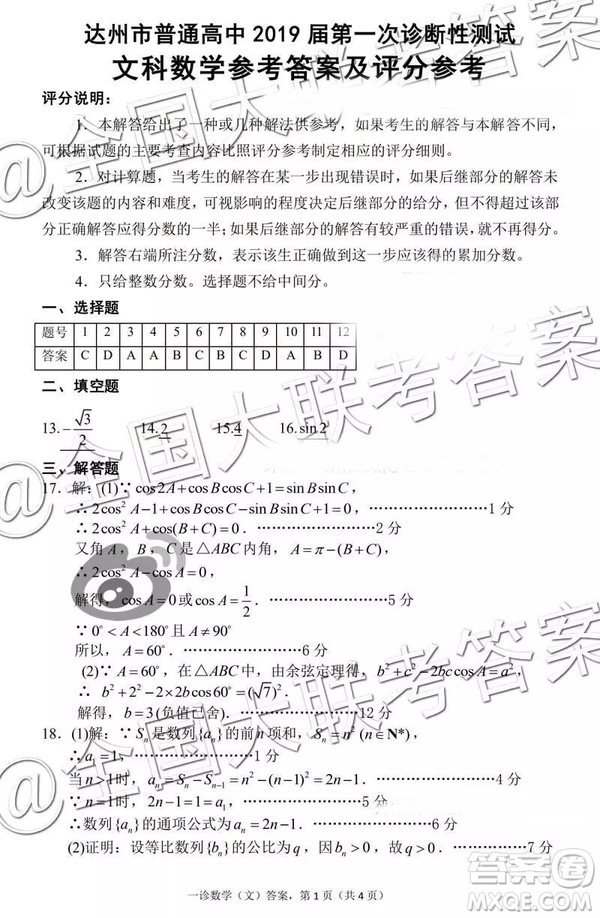 达州市普通高中 2019 届第一次诊断性测试
文科数学参考答案及评分参考
评分说明：
1．本解答给出了一种或几种解法供参考，如果考生的解答与本解答不同，
可根据试题的主要考查内容比照评分参考制定相应的评分细则。
2．对计算题，当考生的解答在某一步出现错误时，如果后继部分的解答未
改变该题的内容和难度，可视影响的程度决定后继部分的给分，但不得超过该部分
正确解答应得分数的一半；如果后继部分的解答有较严重的错误，就不再给分。
3．解答右端所注分数，表示该生正确做到这一步应该得的累加分数。
4．只给整数分数。选择题不给中间分。
一、选择题
题号 1 2 3 4 5 6 7 8 9 10 11 12
答案 C D A A B C B D A B C D
二、填空题
13.-√3/2 14.2 15.4 16.sin2
三、解答题
17．解：(1)∵cos2A+cosBcosC+1=sinBsinC，
∴2cos²A-1+cosBcosC-sinBsinC+1=0，………………1 分
∴2cos²A+cos(B+C)=0．………………2 分
又角 A，B，C 是△ABC 内角，A=π-(B+C)，
∴2cos²A-cosA=0，
解得，cosA=0或cosA=1/2．………………5 分
∵0°<A<180°且 A≠90°
所以，A=60°．………………6 分
(2)∵A=60°，在△ABC 中，由余弦定理得，b²+c²-2bccosA=a²，
∴ b²+2²-2×2bcos60°=(√7)²．
解得，b=3(负值已舍)．………………12 分
18．(1)解：∵Sₙ是数列{aₙ}的前n项和，Sₙ=n²(n∈N*)，
∴a₁=1，………………1 分
当n>1时，aₙ=Sₙ-Sₙ₋₁=n²-(n-1)²=2n-1．………………4 分
∵n=1时，2n-1=1=a₁，………………5 分
∴数列{aₙ}的通项公式为aₙ=2n-1．………………6 分
(2)证明：设等比数列{bₙ}的公比为q，因bₙ>0，所以q>0．………………7 分
一诊数学（文）答案，第 1 页（共 4 页）
@全国大联考答案
@全国大联考答案
@全国大联考答案
答案圈
MXQE.COM